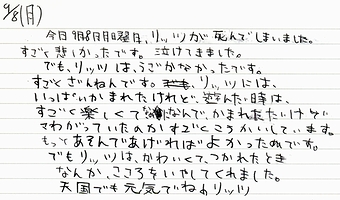 9/8(月)
今日9月8日月曜日、リッツが死んでしまいました。
すごく悲しかったです。泣けてきました。
でも、リッツは、うごかなかったです。
すごくざんねんです。リッツには、
いっぱいかまれたけれど、遊んだ時は、
すごく楽しくてなんで、かまれただけで
さわがっていたのかすごくこうかいしています。
もっとあそんであげればよかったのです。
でもリッツは、かわいくて、つかれたとき
なんか、こころをいやしてくれました。
天国でも元気でねリッツ